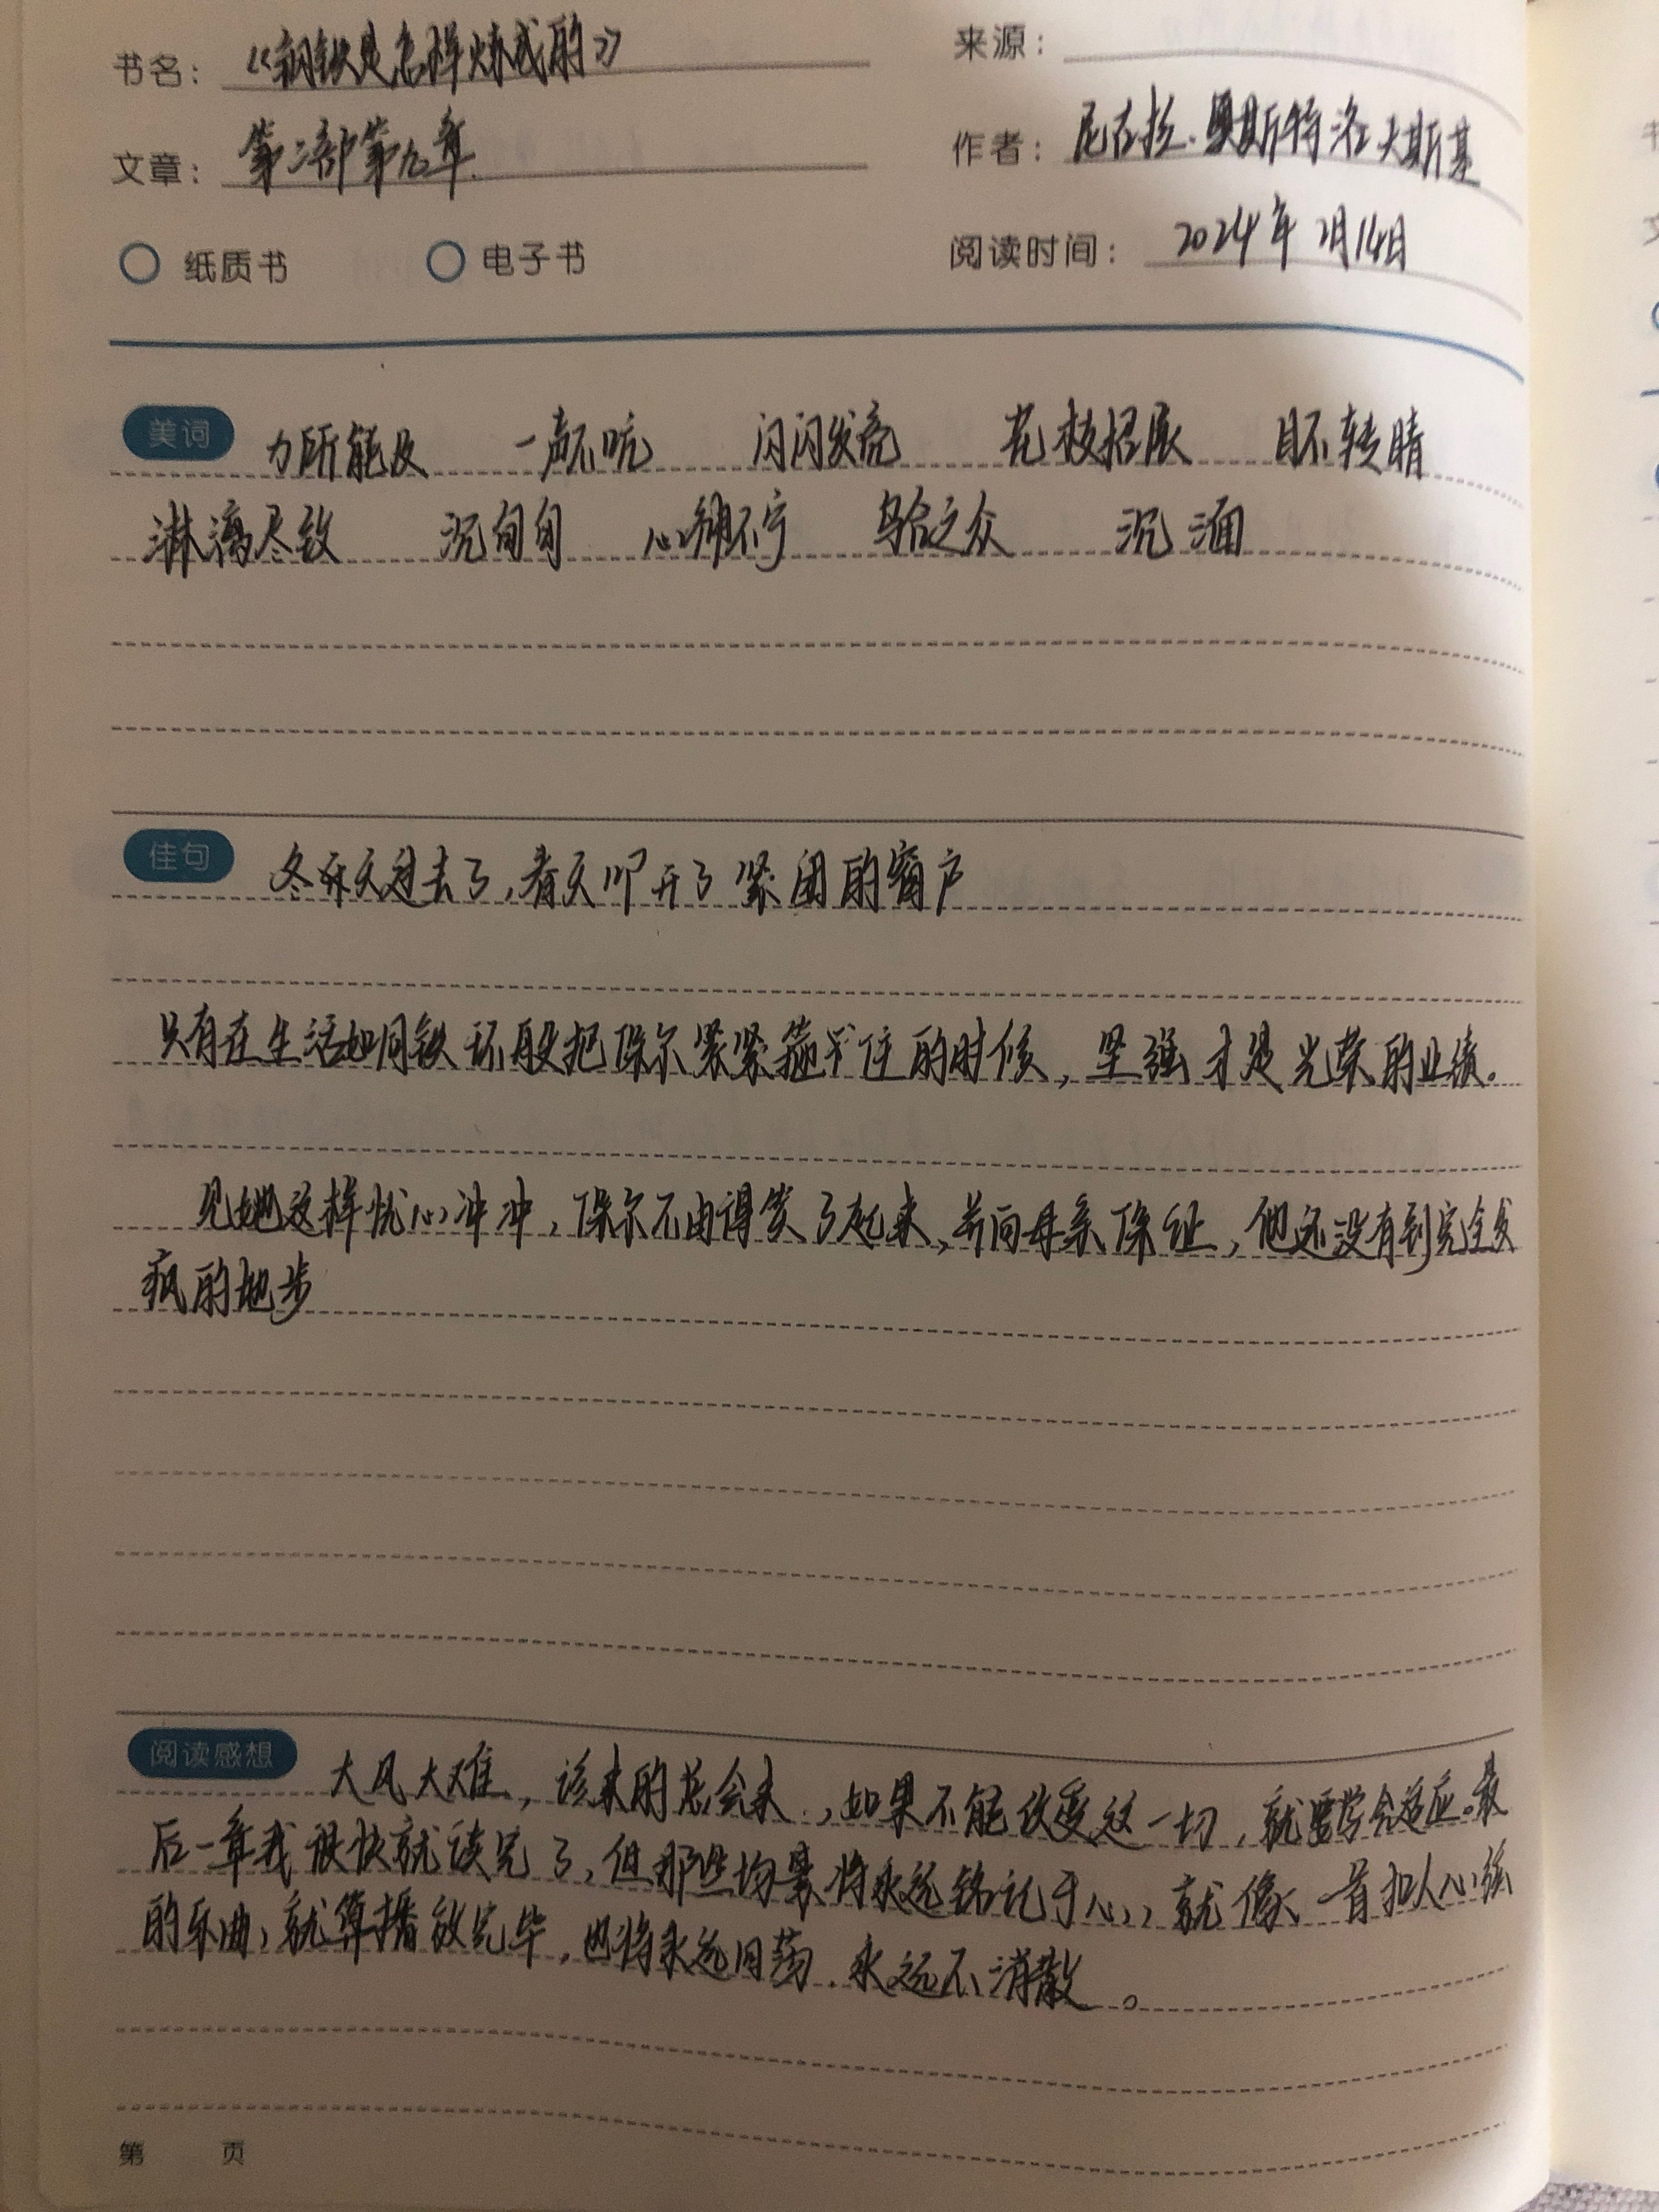 书名： 《钢铁是怎样炼成的》
来源：
文章： 第二部第九章.
作者： 尼古拉·奥斯特洛夫斯基
纸质书 电子书
阅读时间： 2024年2月14日
美词 力所能及 一声不吭 闪闪发亮 花枝招展 目不转睛
淋漓尽致 沉甸甸 心神不宁 乌合之众 沉湎
佳句 冬天过去了，春天叩开了紧闭的窗户
只有在生活如同铁环般把保尔紧紧箍住的时候，坚强才是光荣的业绩。
见她这样忧心冲冲，保尔不由得笑了起来，并向母亲保证，他还没有到完全发
疯的地步
阅读感想 大风大难，该来的总会来，如果不能改变这一切，就要学会适应。最
后一章我很快就读完了，但那些场景将永远铭记于心，就像一首扣人心弦
的乐曲，就算播放完毕，也将永远回荡，永远不消散。
第 页